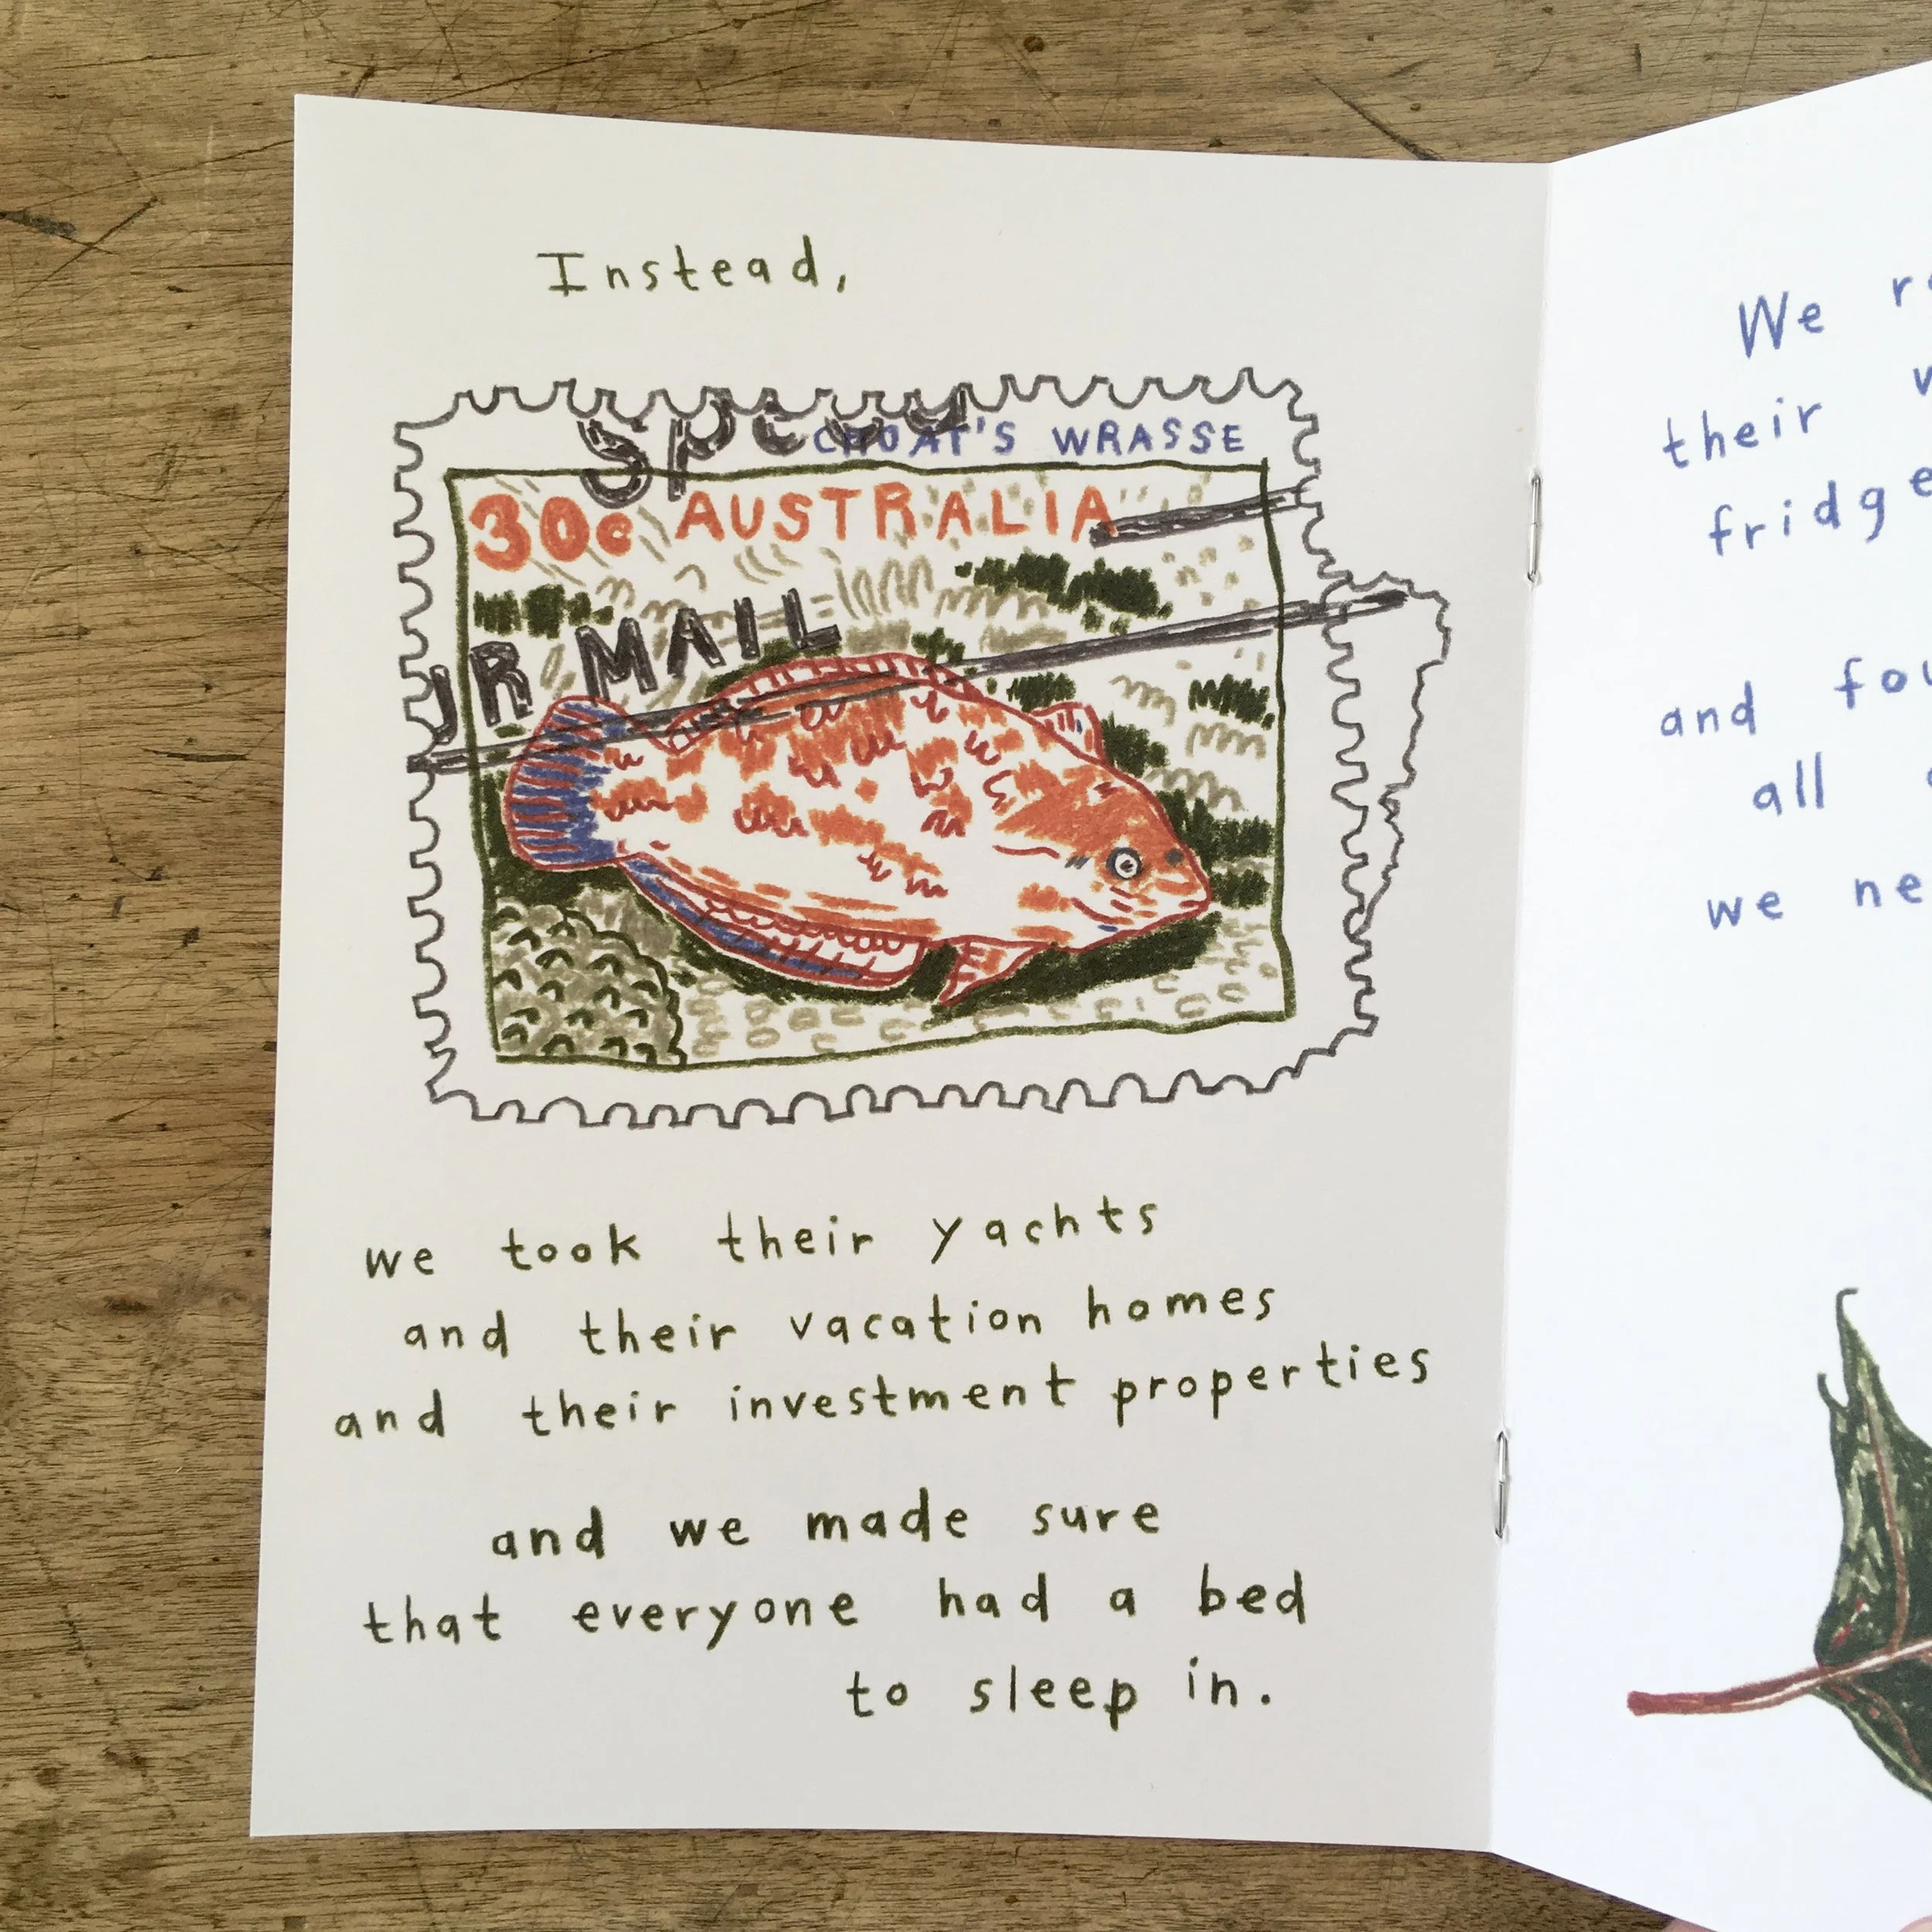 Instead,
Speed
CHOAT'S WRASSE
30c AUSTRALIA
UR MAIL
we took their yachts
and their vacation homes
and their investment properties
and we made sure
that everyone had a bed
to sleep in.
We
their
fridge
and
all
we